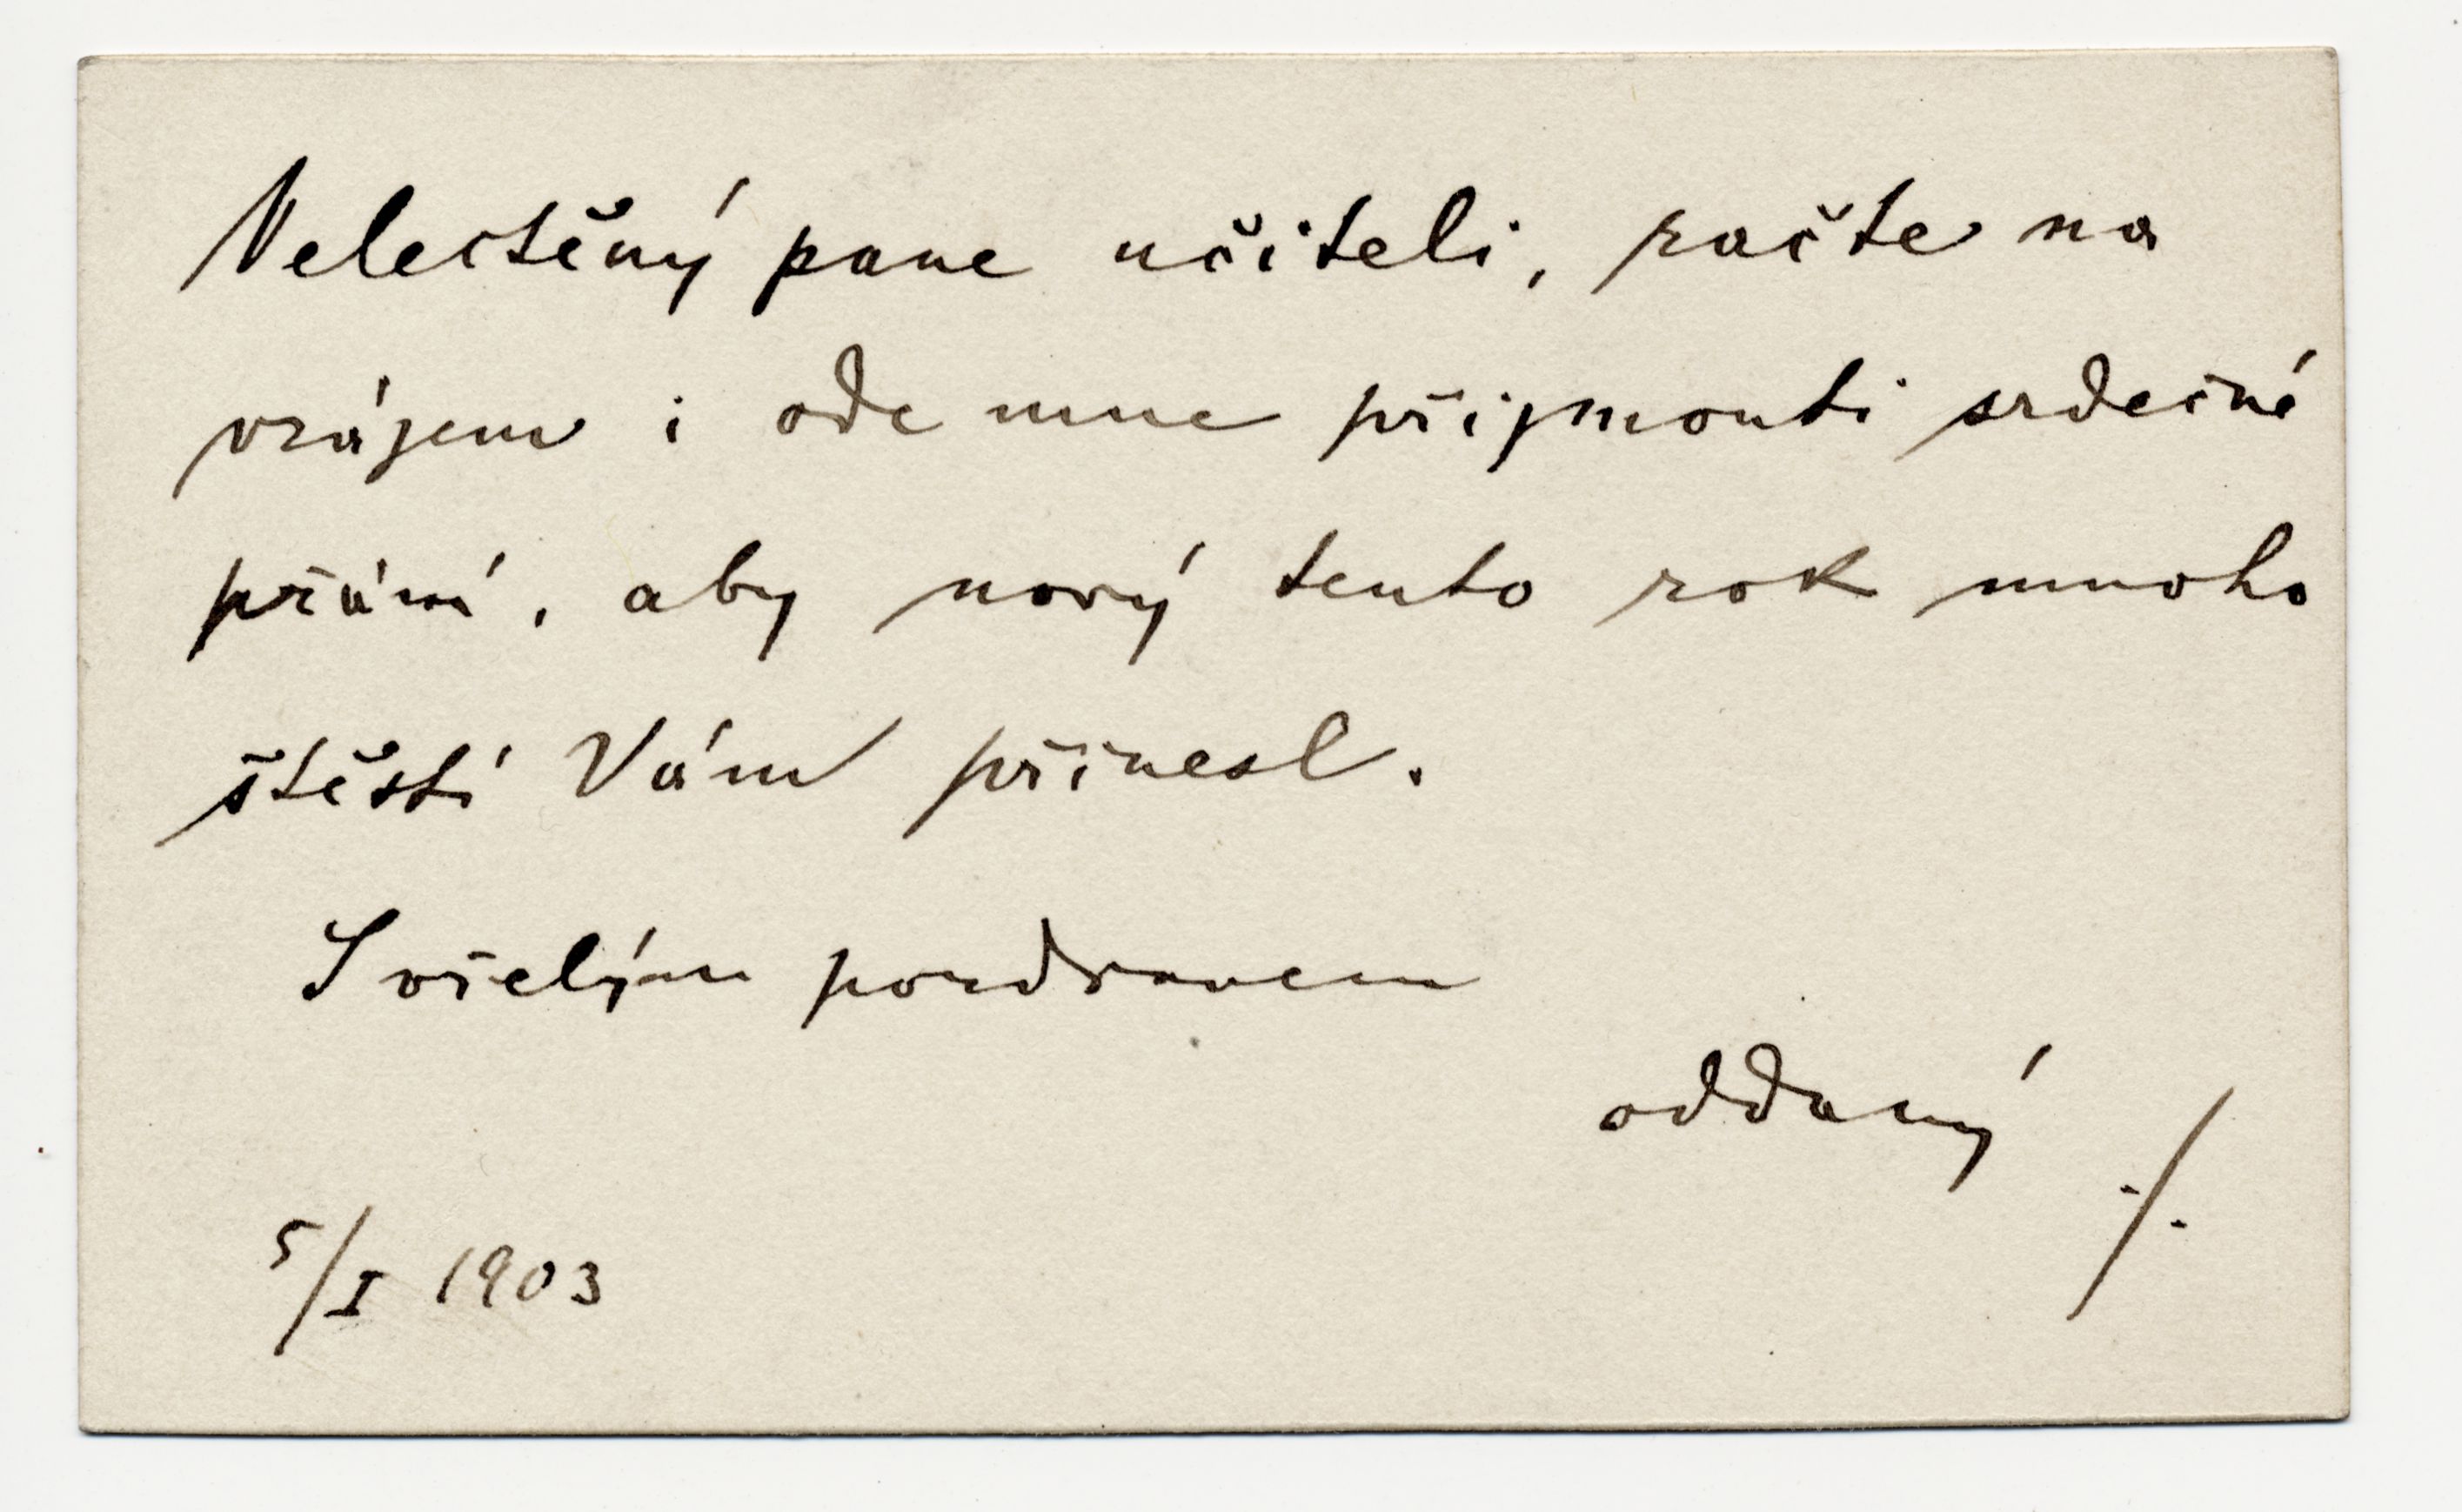 Velectěný pane učiteli, račte na
vzájem i ode mne přijmouti srdečné
přání, aby nový tento rok mnoho
štěstí Vám přinesl.
S vřelým pozdravem
oddaný
./.
5/I 1903